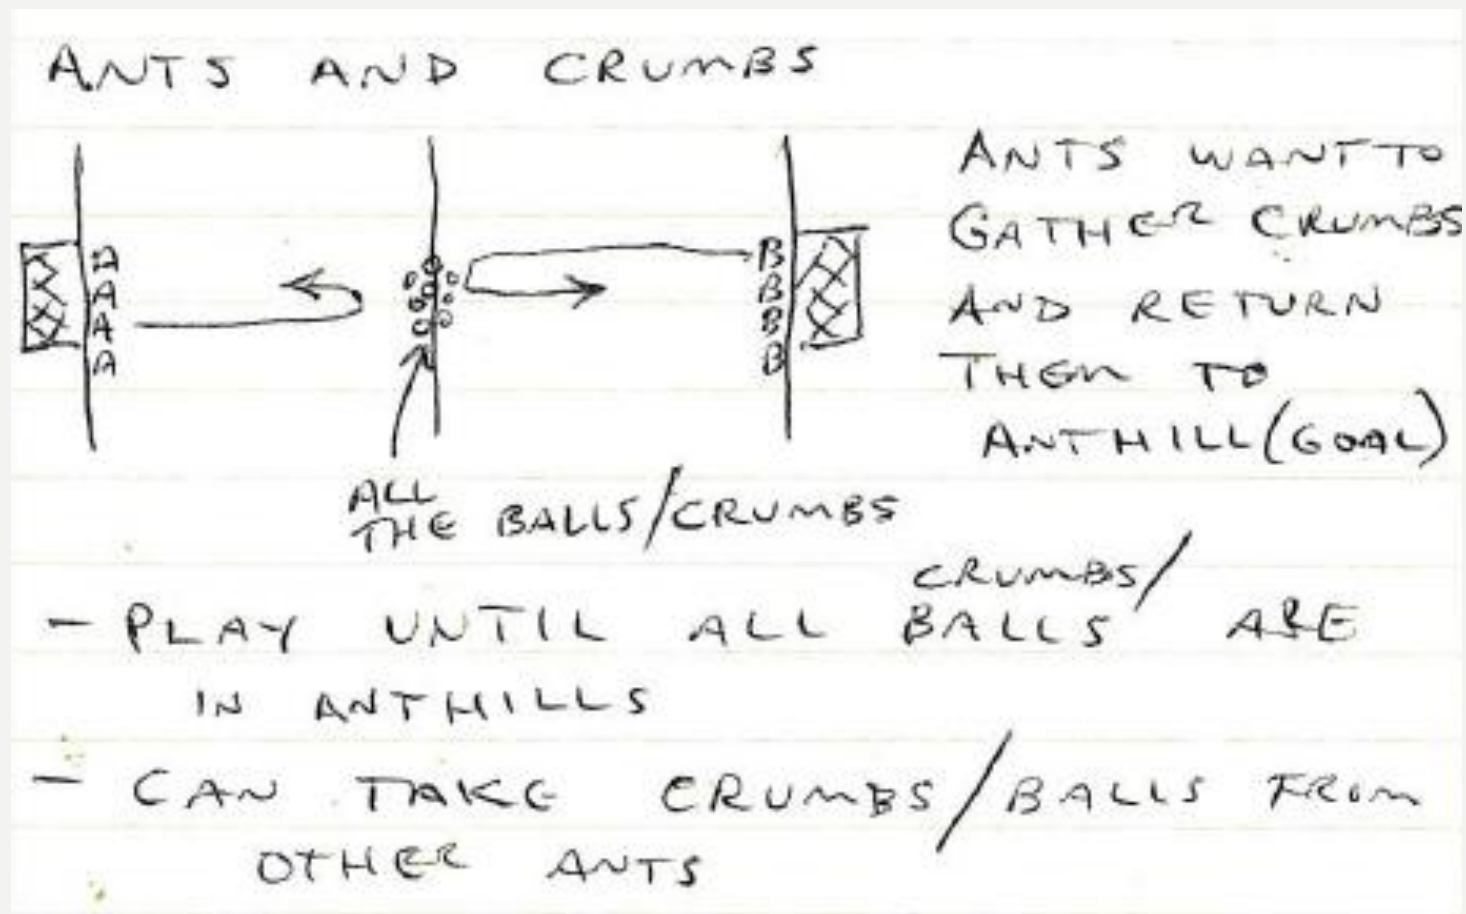 ANTS AND CRUMBS
A
A
A
A
B
B
B
B
ANTS WANT TO
GATHER CRUMBS
AND RETURN
THEM TO
ANTHILL (GOAL)
ALL
THE BALLS/CRUMBS
CRUMBS/
- PLAY UNTIL ALL BALLS ARE
IN ANTHILLS
- CAN TAKE CRUMBS/BALLS FROM
OTHER ANTS